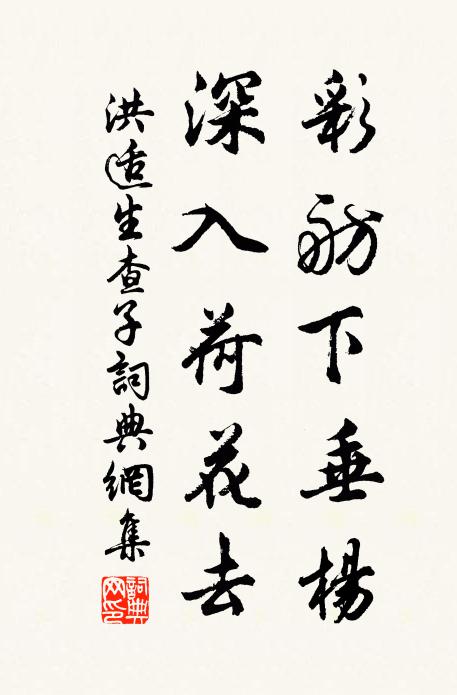 彩舫下垂楊
深入荷花去
洪适生查子詞典網集
詞典網印